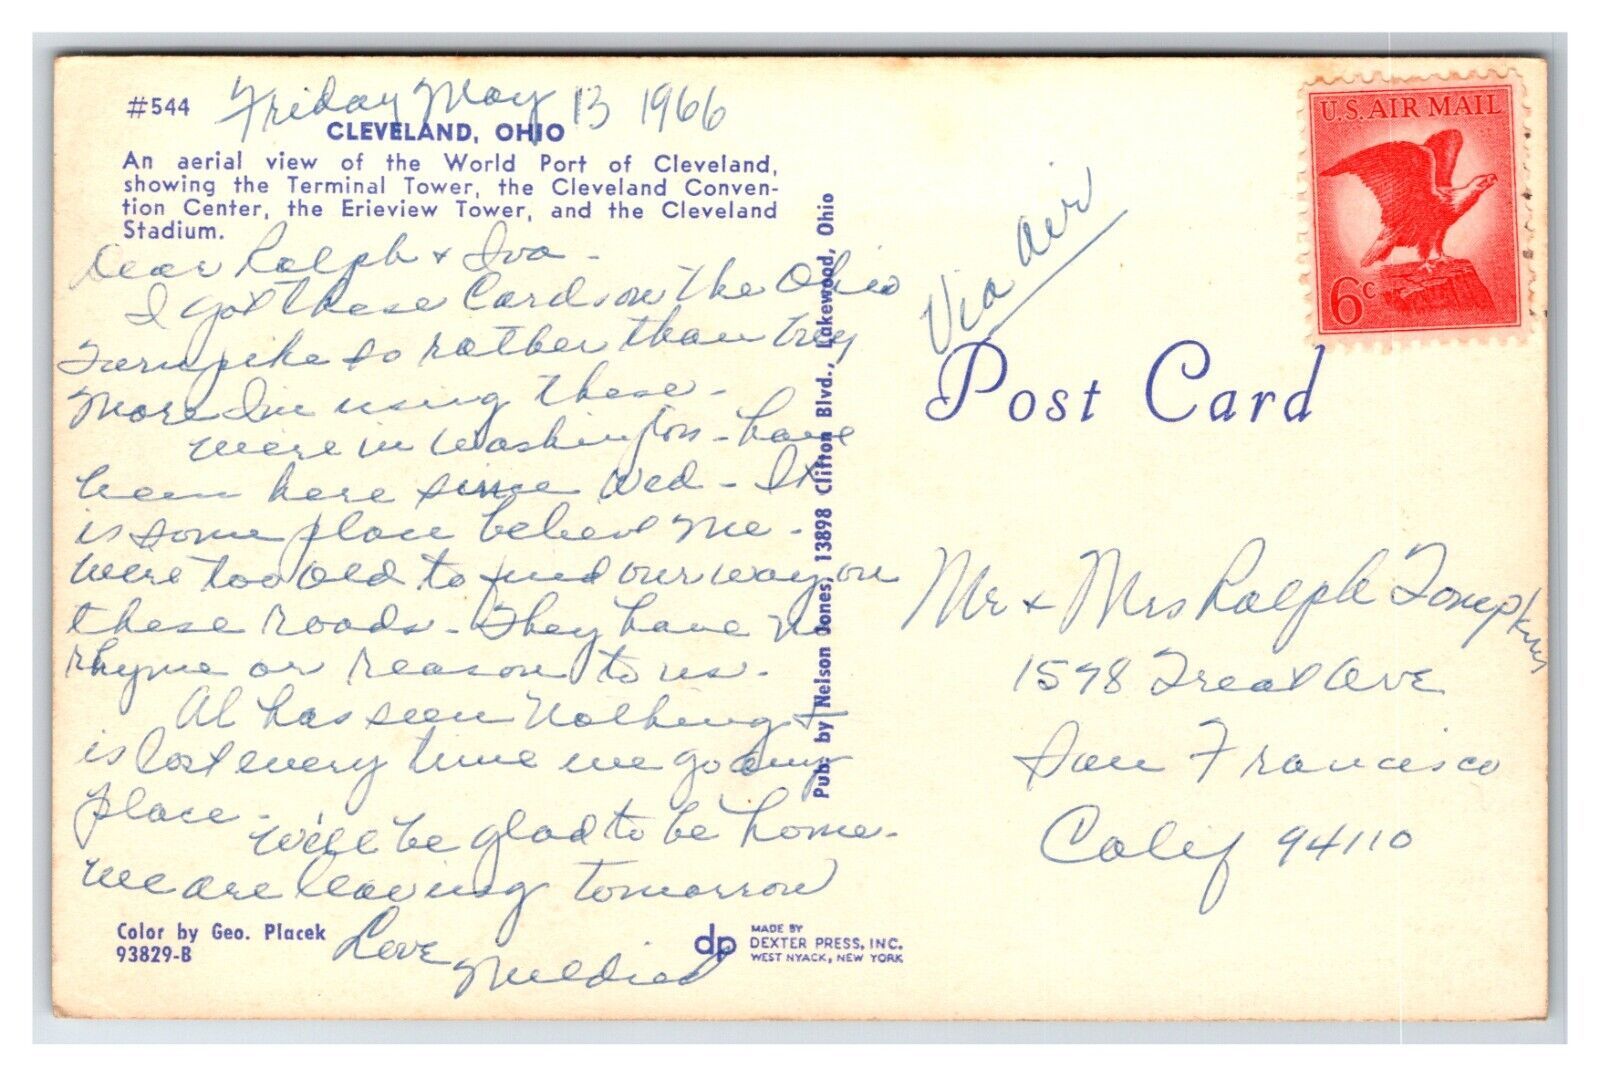 #544 Friday May 13 1966
CLEVELAND, OHIO
An aerial view of the World Port of Cleveland,
showing the Terminal Tower, the Cleveland Conven-
tion Center, the Erieview Tower, and the Cleveland
Stadium.
Dear Ralph + Iva -
I got these Cards on the Ohio
Turnpike so rather than buy
More Im using these -
were in Washington - have
been here since Wed - It
is some place believe me -
were too old to find our way on
these roads - They have no
rhyme or reason to us -
Al has seen Nothing +
is lost every time we go any
place -
We'll be glad to be home -
we are leaving tomorrow
Love
Mildred
Color by Geo. Placek
93829-B
dp
MADE BY
DEXTER PRESS, INC.
WEST NYACK, NEW YORK
Pub. by Nelson Jones, 13898 Clifton Blvd., Lakewood, Ohio
Via air
U.S. AIR MAIL
6c
Post Card
Mr + Mrs Ralph Tompkins
1578 Treat Ave
San Francisco
Calif 94110